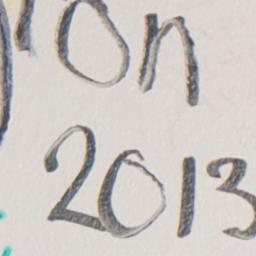 on
2013